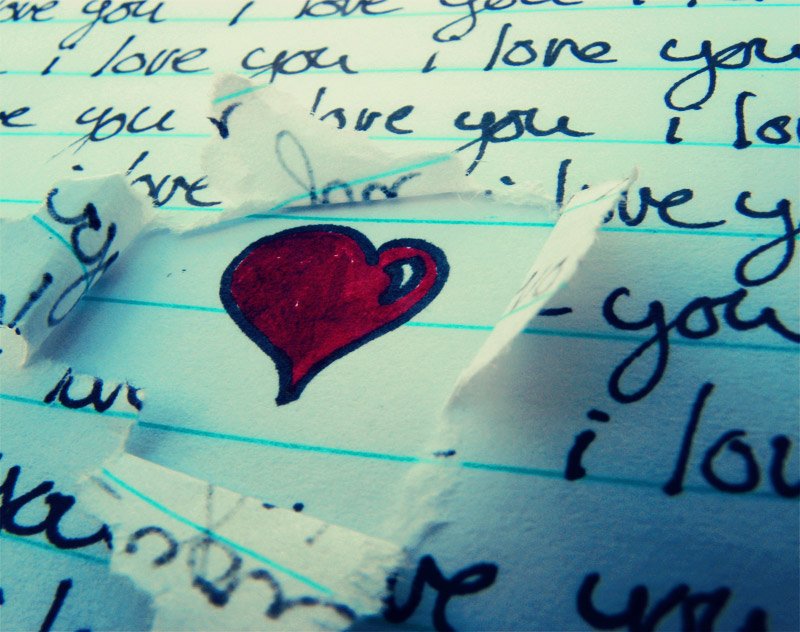 love you i love you i love
i love you i love you
you love you i lo
love i love y
you
love i lov
you love
ve you